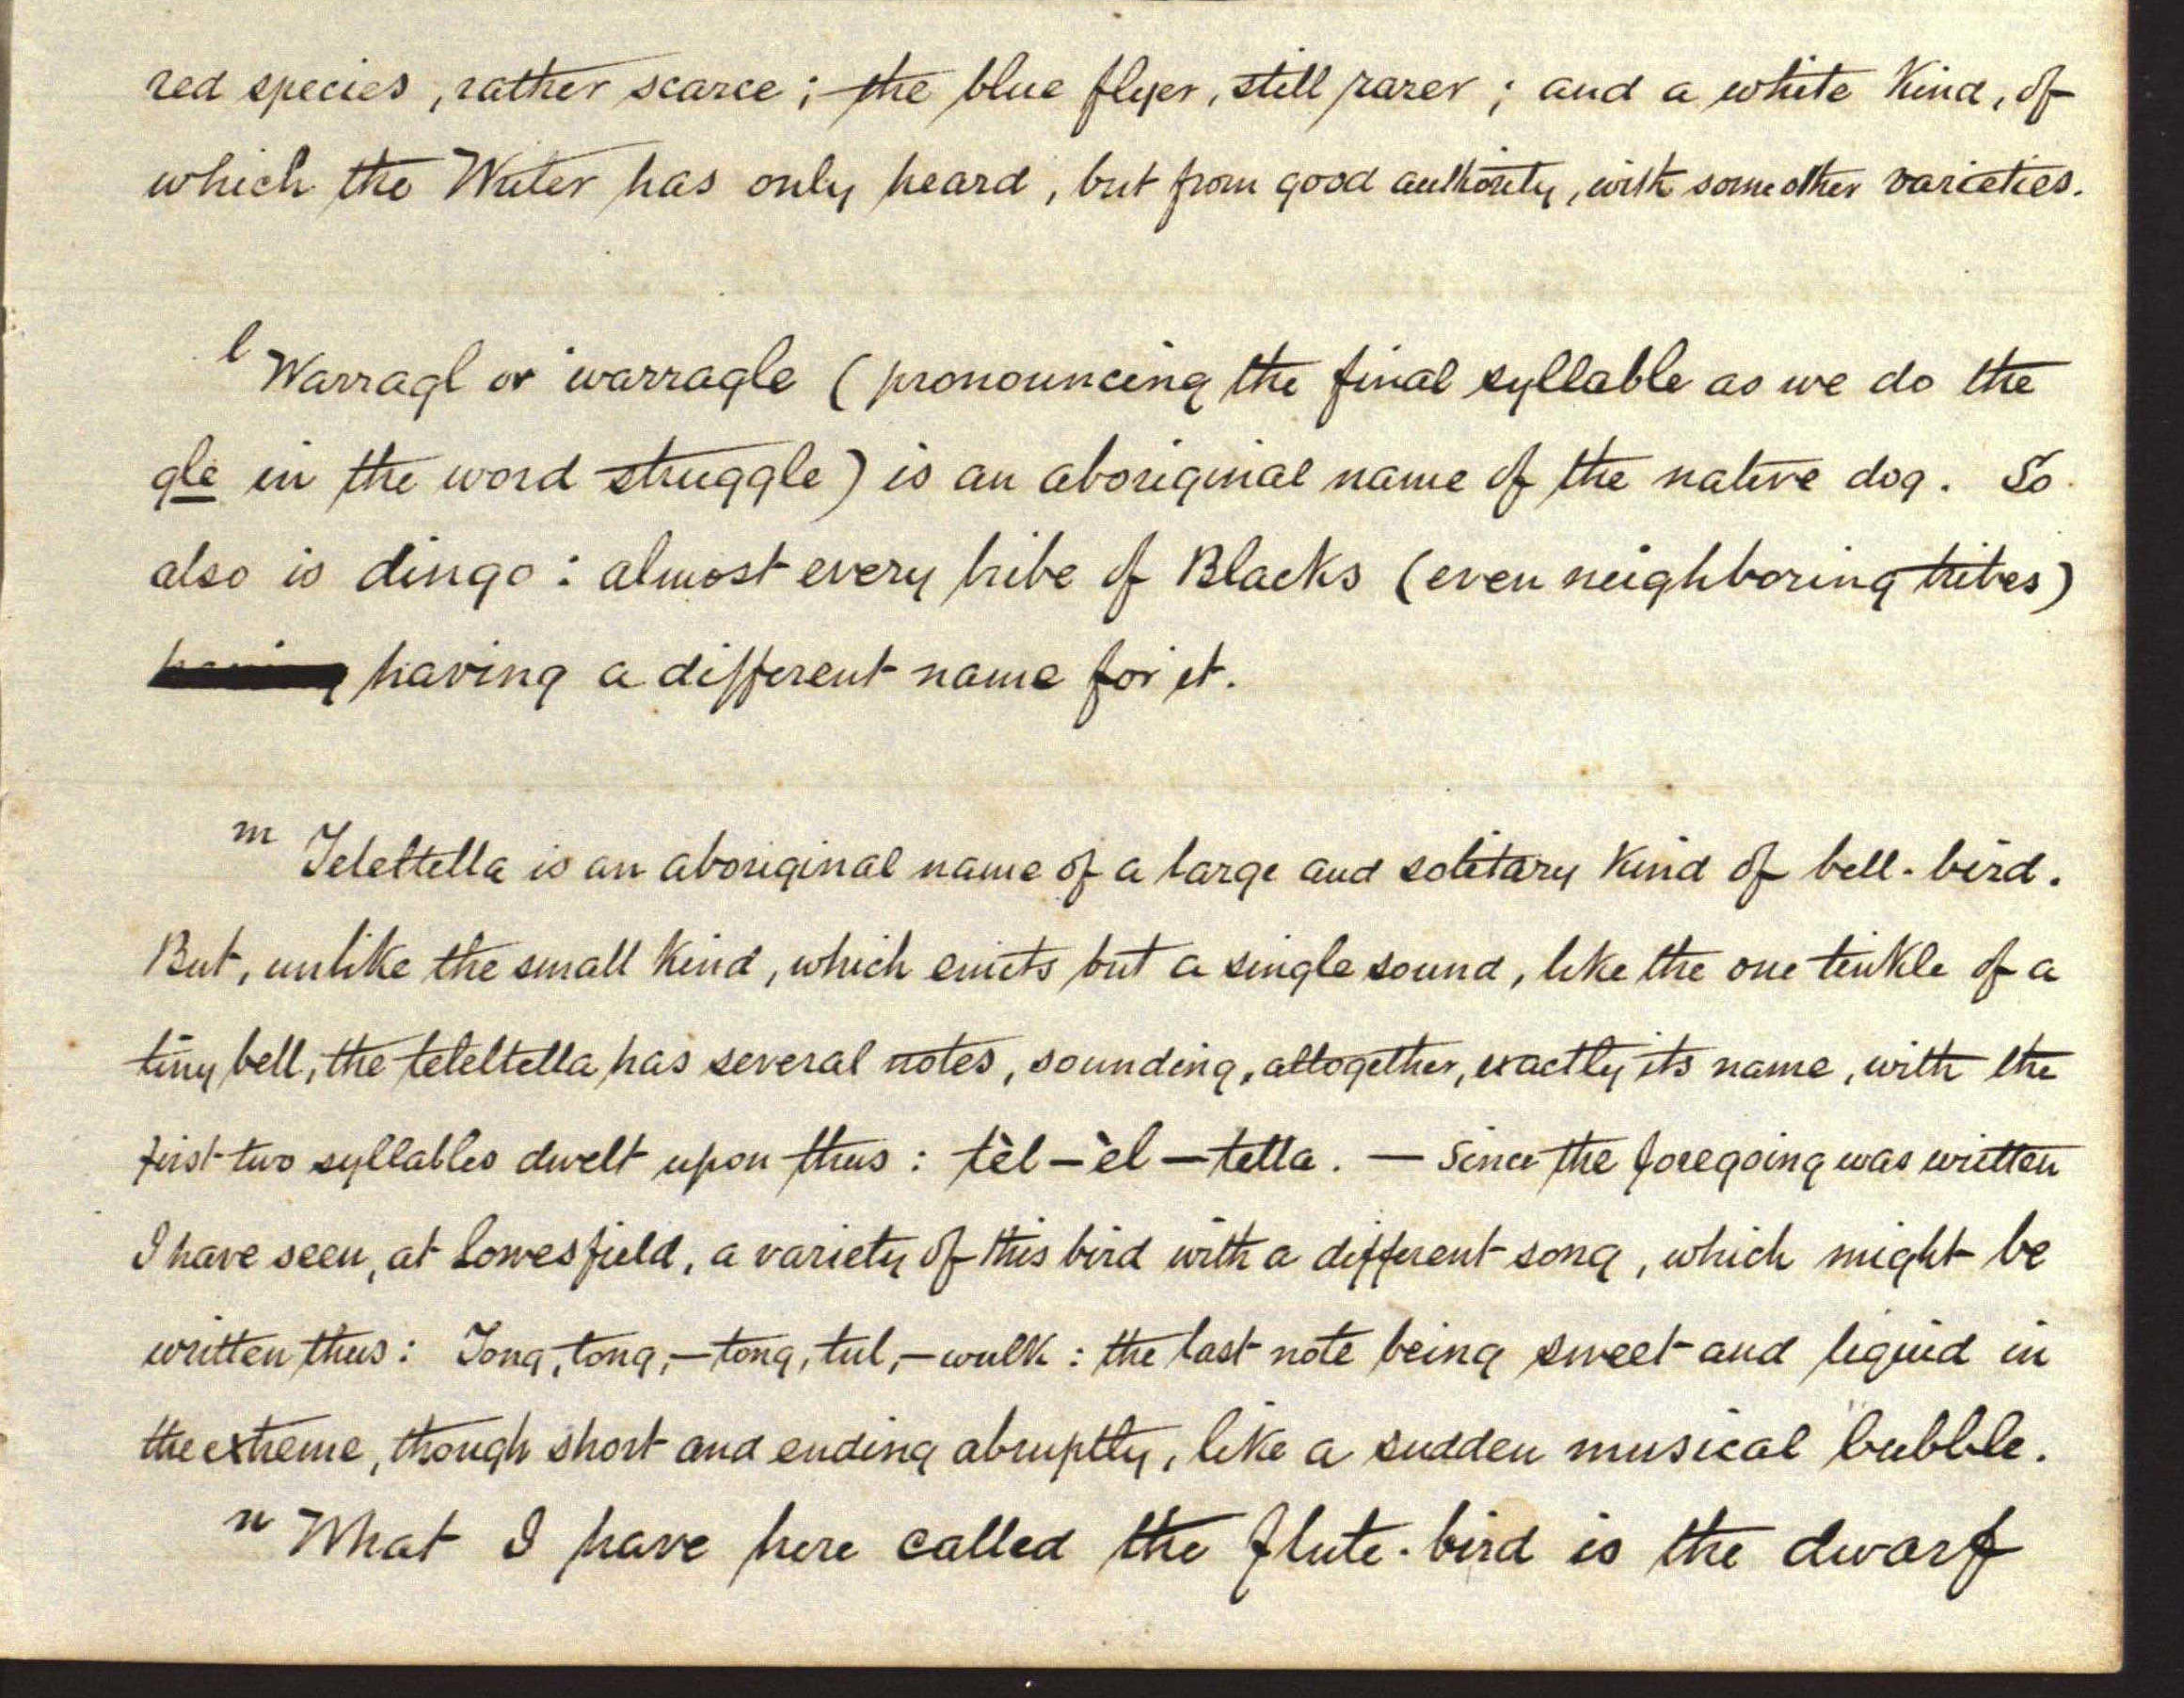 red species, rather scarce; the blue flyer, still rarer; and a white kind, of
which the Writer has only heard, but from good authority, with some other varieties.
l Warragl or warragle (pronouncing the final syllable as we do the
gle in the word struggle) is an aboriginal name of the native dog. So
also is dingo: almost every tribe of Blacks (even neighboring tribes)
having a different name for it.
m Teleltella is an aboriginal name of a large and solitary kind of bell-bird.
But, unlike the small kind, which emits but a single sound, like the one tinkle of a
tiny bell, the teleltella has several notes, sounding, altogether, exactly its name, with the
first two syllables dwelt upon thus: tèl–èl–tella. — Since the foregoing was written
I have seen, at Lowesfield, a variety of this bird with a different song, which might be
written thus: Tong, tong,–tong, tul,–wulk: the last note being sweet and liquid in
the extreme, though short and ending abruptly, like a sudden musical bubble.
n What I have here called the flute-bird is the dwarf